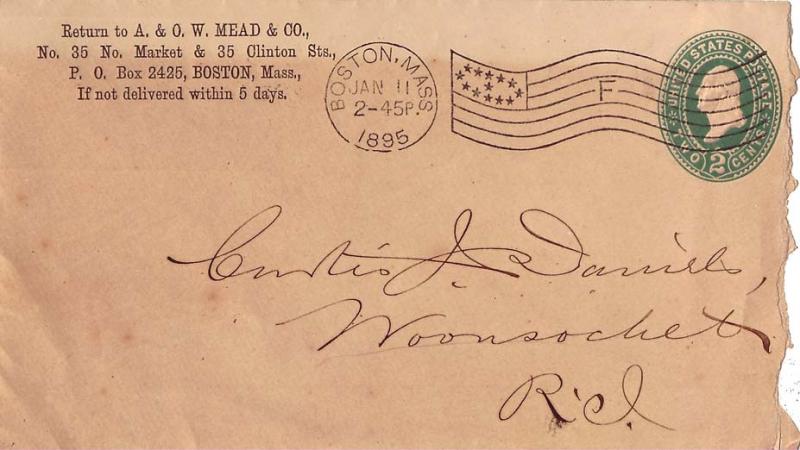 Return to A. & O. W. MEAD & CO.,
No. 35 No. Market & 35 Clinton Sts.,
P. O. Box 2425, BOSTON, Mass.,
If not delivered within 5 days.
BOSTON, MASS
JAN 11
2-45P.
1895
F
UNITED STATES POSTAGE
TWO 2 CENTS
Curtis J. Daniels,
Woonsocket
R. I.